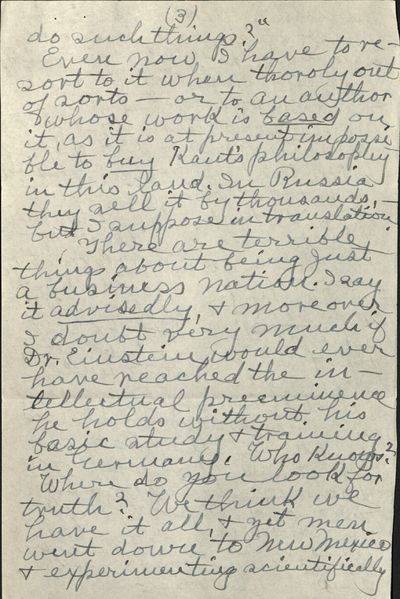 (3)
do such things?"
Even now I have to re-
sort to it when thoroly out
of sorts — or to an author
whose work is based on
it, as it is at present impossi-
ble to buy Kant's philosophy
in this land. In Russia
they sell it by thousands, —
but I suppose in translation
There are terrible
things about being just
a business nation. I say
it advisedly, & moreover
I doubt very much if
Dr. Einstein would ever
have reached the in-
tellectual preeminence
he holds without his
basic study & training
in Germany. Who knows?
Where do you look for
truth? We think we
have it all, & yet men
went down to New Mexico
& experimenting scientifically